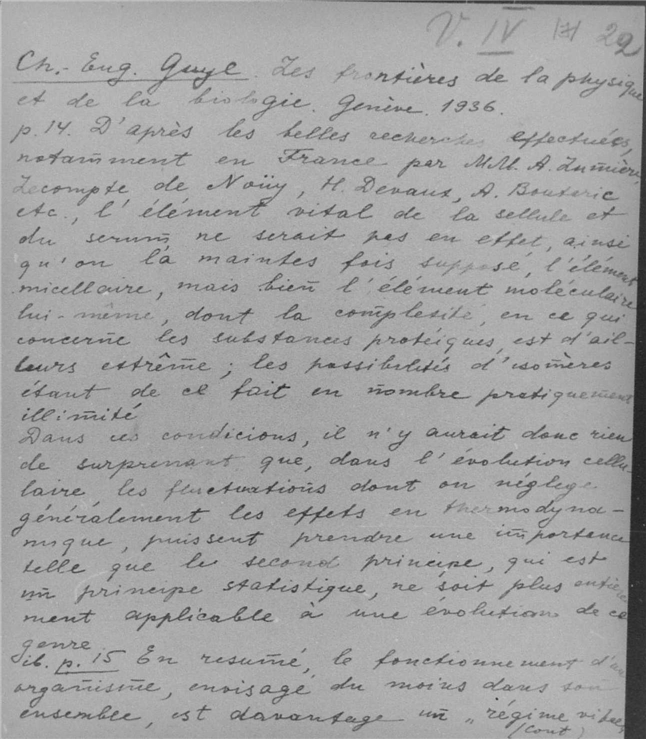 V. IV 22
Ch.-Eug. Guye. Les frontières de la physique
et de la biologie. Genève. 1936.
p. 14. D'après les belles recherches effectuées,
notamment en France par MM. A. Lumière,
Lecompte de Noüy, H. Devaux, A. Bouteric
etc., l'élément vital de la sellule et
du serum ne serait pas en effet, ainsi
qu'on l'a maintes fois supposé, l'élément
micellaire, mais bien l'élément moléculaire
lui-même, dont la complexité, en ce qui
concerne les substances protéiques, est d'ail-
leurs extrême; les possibilités d'isomères
étant de ce fait en nombre pratiquement
illimité
Dans ces condicions, il n'y aurait donc rien
de surprenant que, dans l'évolution cellu
laire, les fluctuations dont on néglege
généralement les effets en thermodyna-
mique, puissent prendre une importance
telle que le second principe, qui est
un principe statistique, ne soit plus entière
ment applicable à une évolution de ce
genre
ib. p. 15 En resumé, le fonctionnement d'un
organisme, envisagé du moins dans son
ensemble, est davantage un „régime vital
(cont)